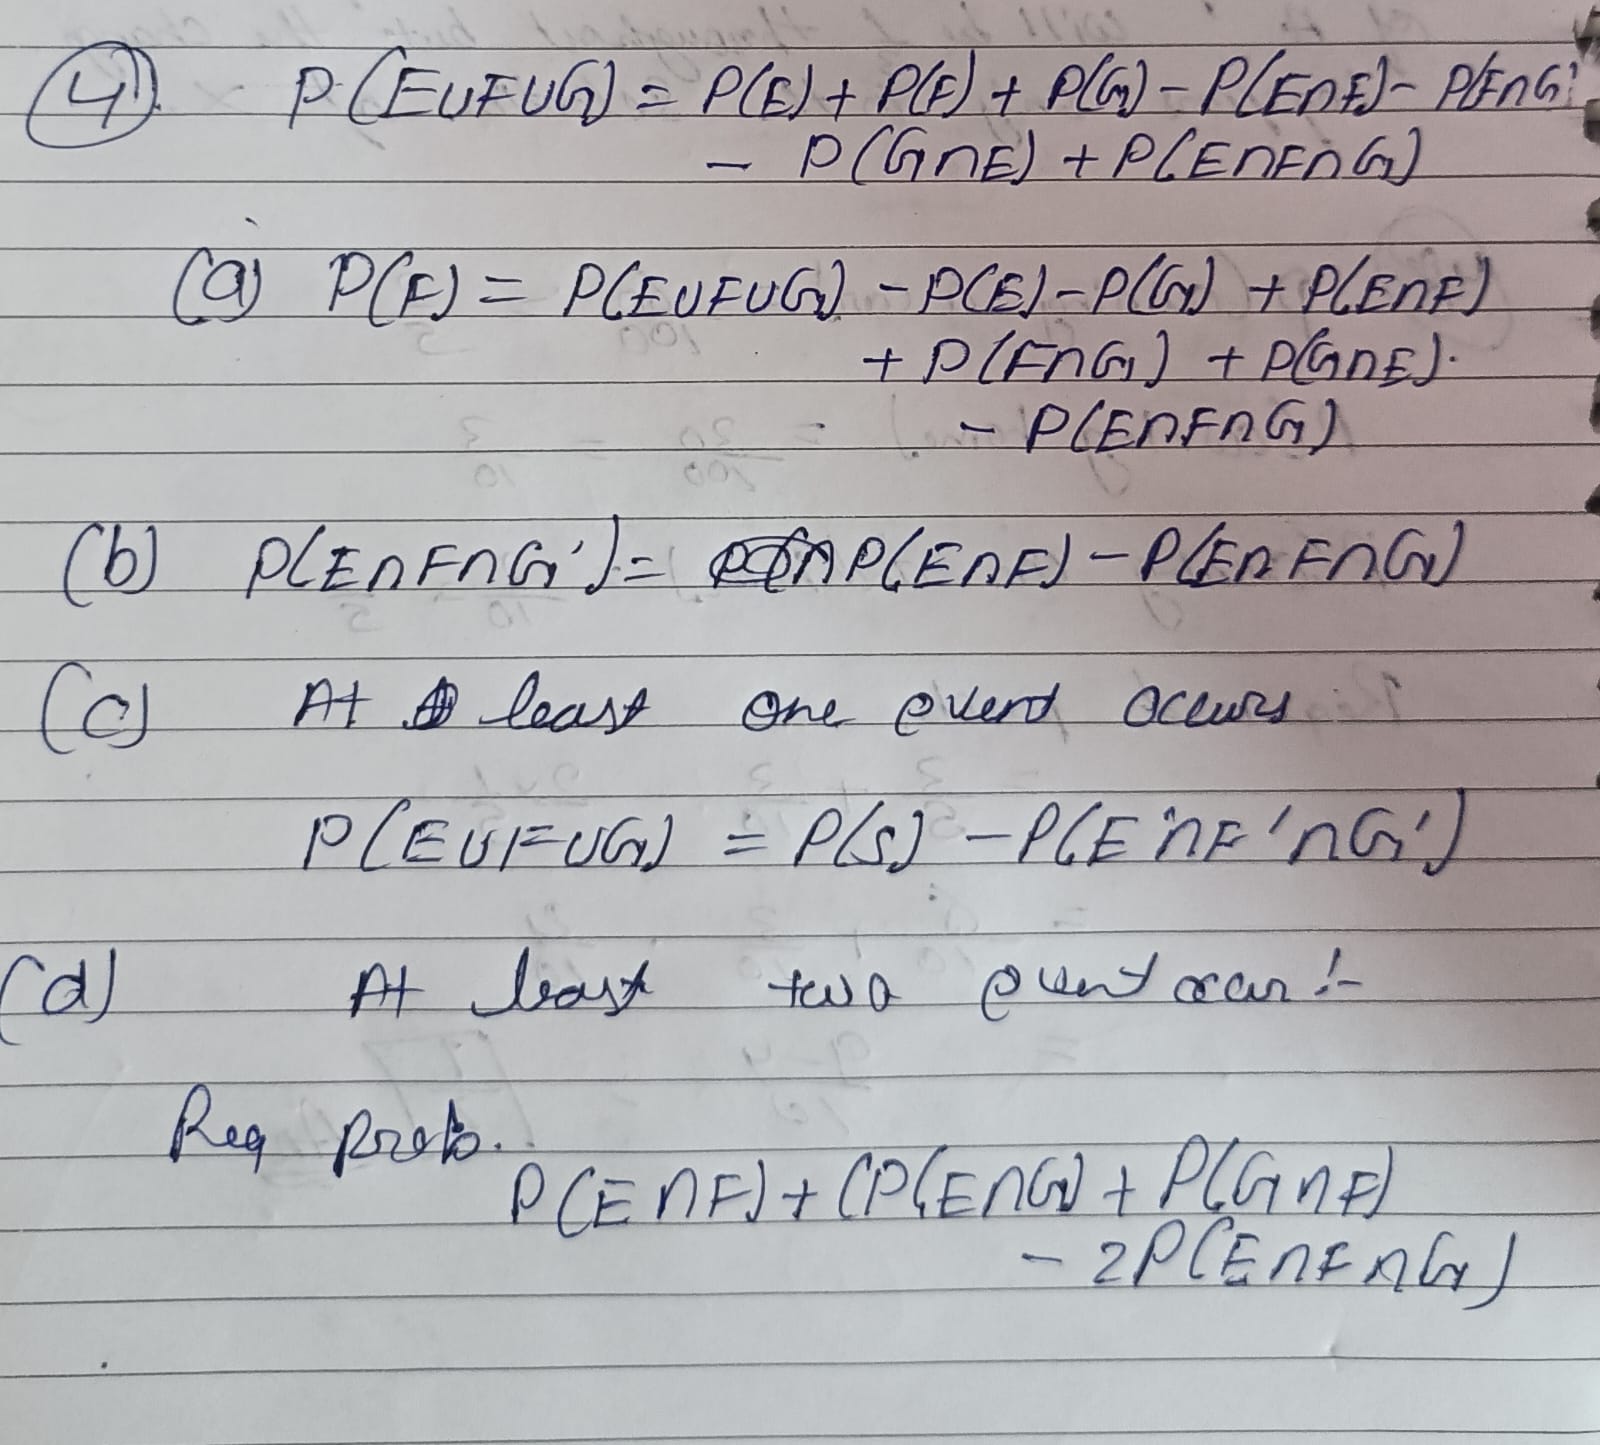 4) P(E∪F∪G) = P(E) + P(F) + P(G) - P(E∩F) - P(F∩G)
- P(G∩E) + P(E∩F∩G)
(a) P(F) = P(E∪F∪G) - P(E) - P(G) + P(E∩F)
+ P(F∩G) + P(G∩E).
- P(E∩F∩G)
(b) P(E∩F∩G') = P(E∩F) - P(E∩F∩G)
(c) At least one event occurs
P(E∪F∪G) = P(S) - P(E'∩F'∩G')
(d) At least two event occur :-
Req prob.
P(E∩F) + (P(E∩G) + P(G∩F)
- 2P(E∩F∩G)